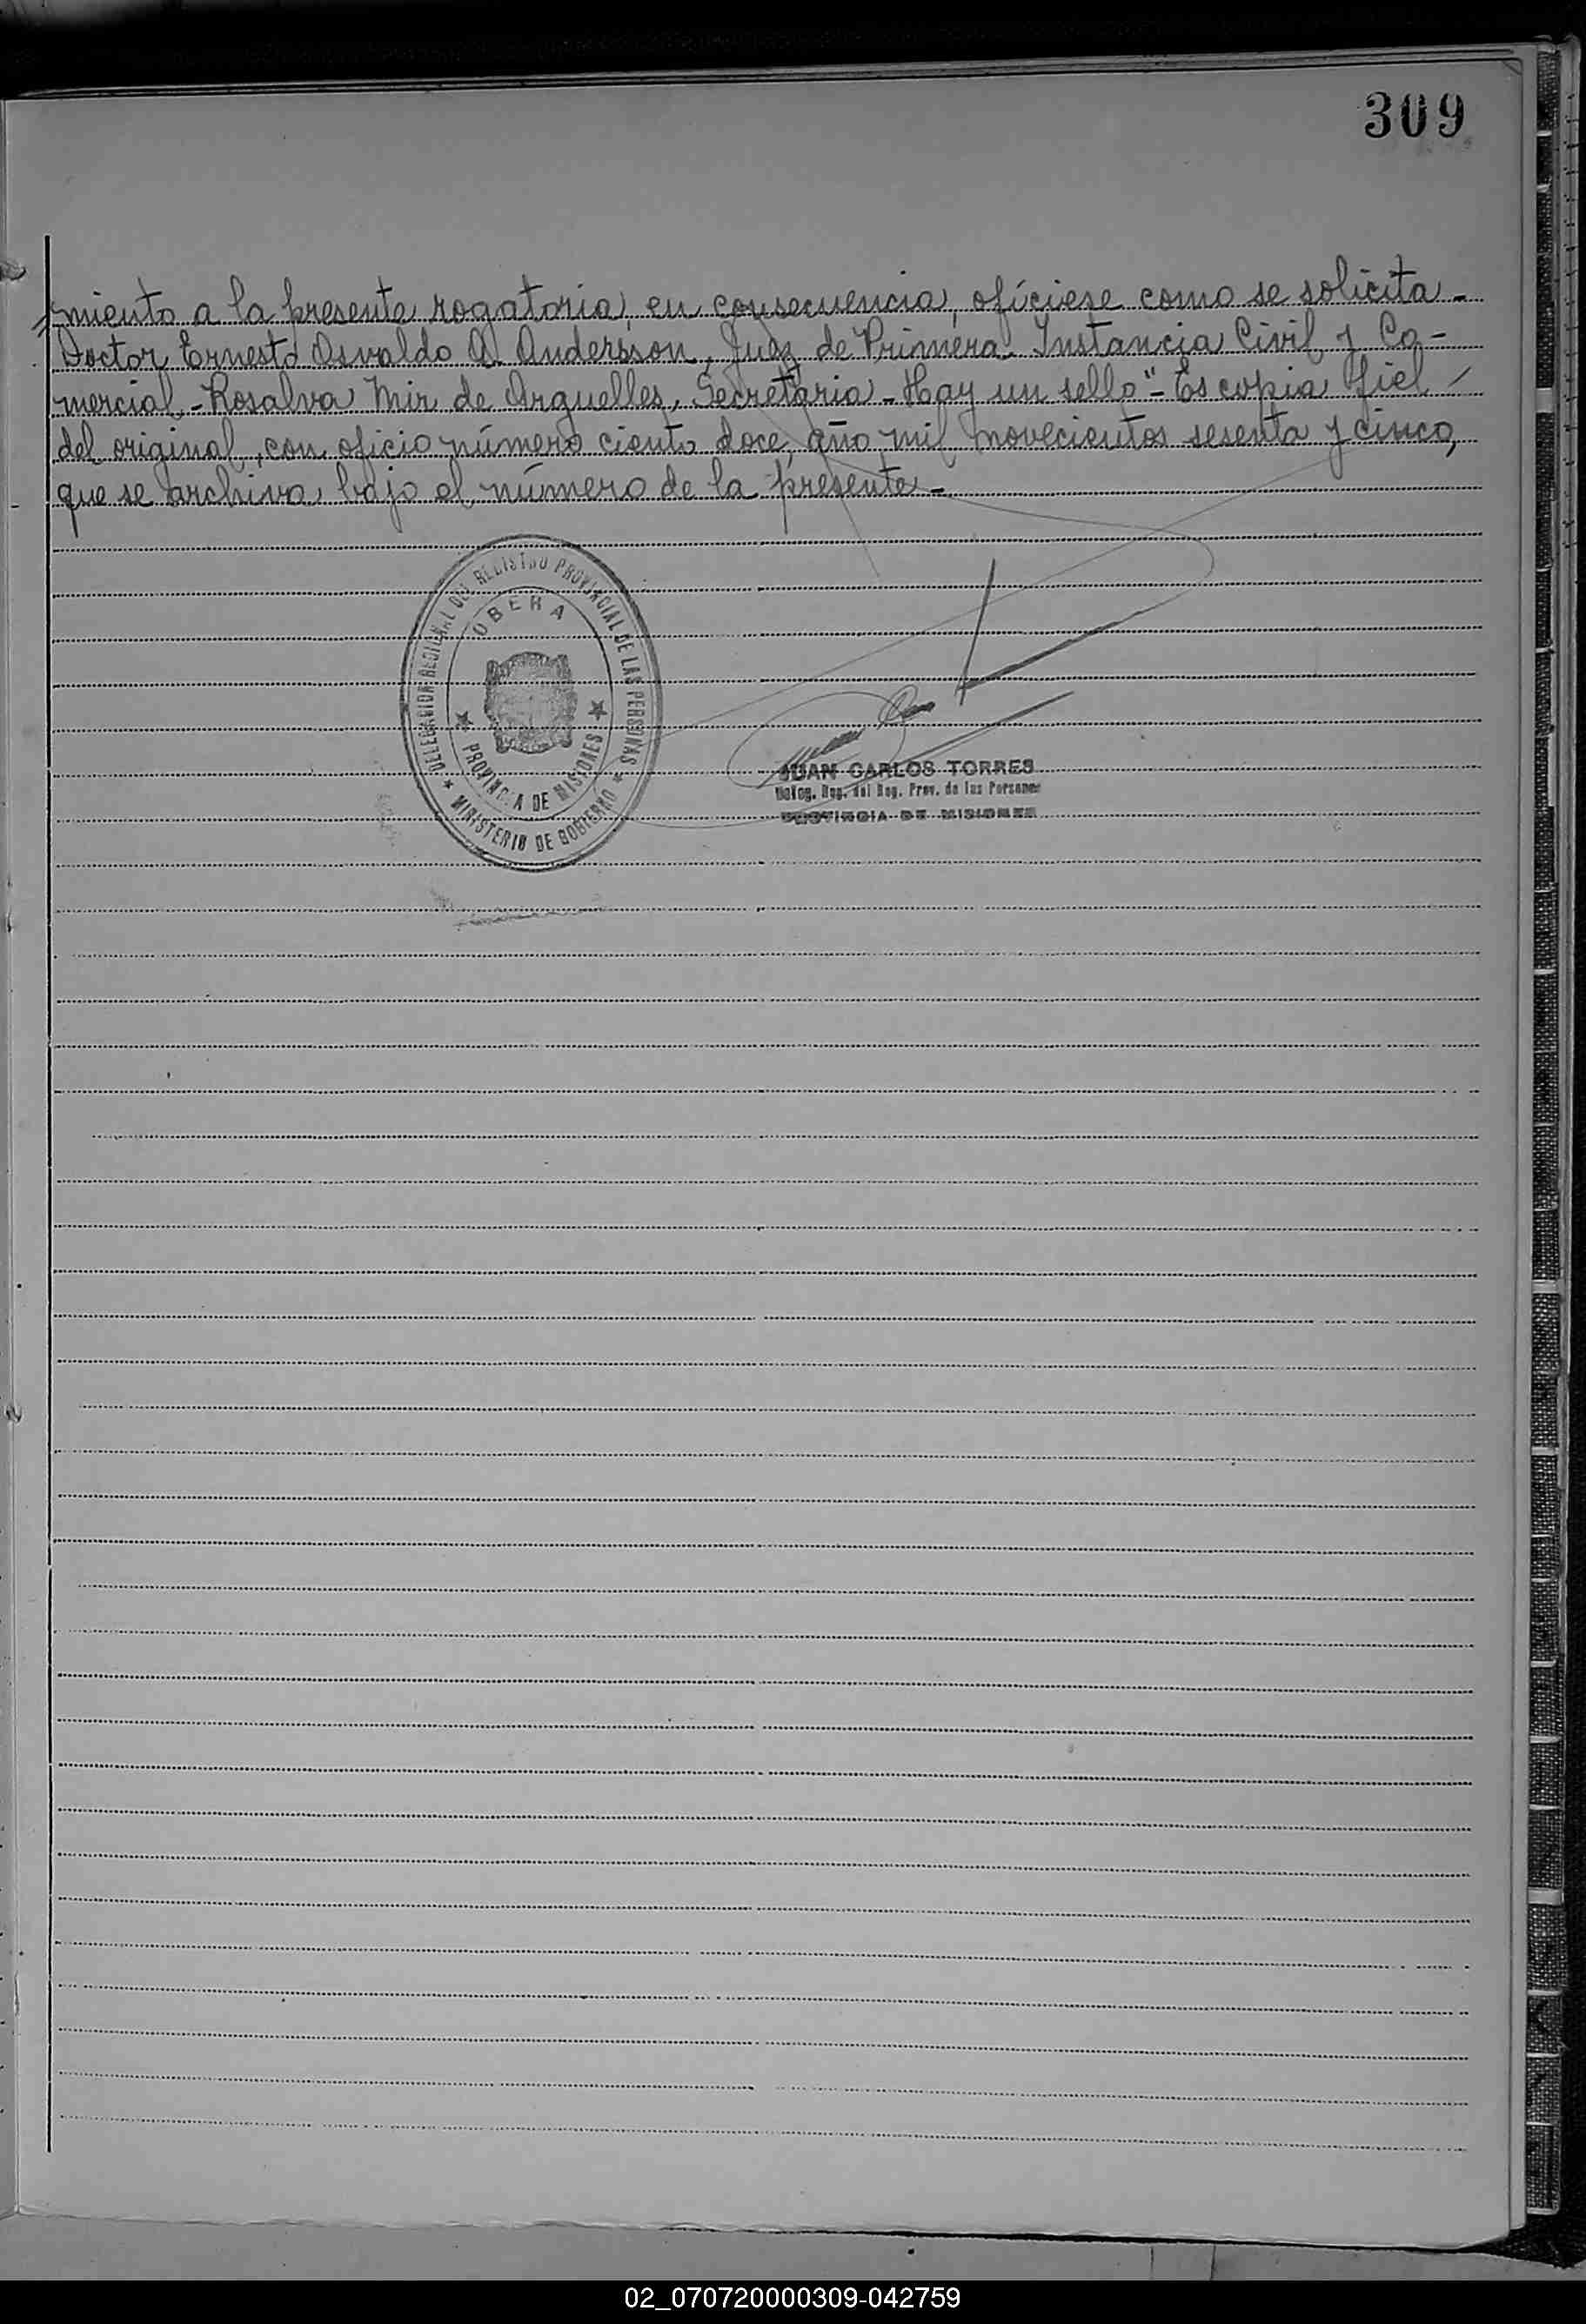 309
miento a la presente rogatoria, en consecuencia, ofíciese como se solicita.-
Doctor Ernesto Osvaldo A. Andersson, Juez de Primera Instancia Civil y Co-
mercial.-Rosalva Mir de Arguelles, Secretaria-Hay un sello"-Es copia fiel
del original, con oficio número ciento doce, año mil novecientos sesenta y cinco,
que se archiva bajo el número de la presente.-
DELEGACION REGIONAL DEL REGISTRO PROVINCIAL DE LAS PERSONAS
OBERA
PROVINCIA DE MISIONES
MINISTERIO DE GOBIERNO
JUAN CARLOS TORRES
Deleg. Reg. del Reg. Prov. de las Personas
PROVINCIA DE MISIONES
02_070720000309-042759